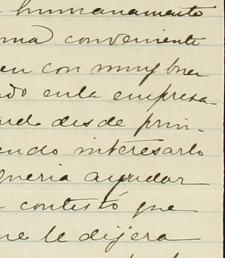 humanamente
conveniente
en con muy buen
en la empresa
desde prin-
endo interesarlo
queria ayudar
contestó que
que le dijera